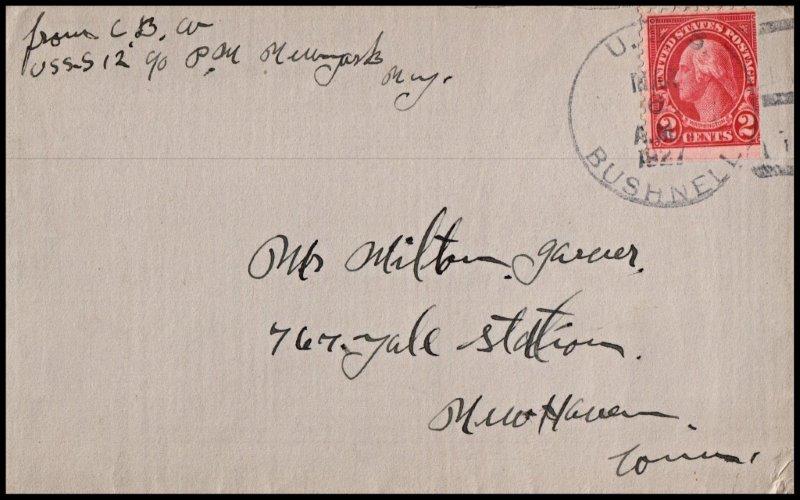 from C. B. W
USS-S 12 c/o P.M. Newyork
N.y.
UNITED STATES POSTAGE
WASHINGTON
2 CENTS 2
U.S.S
A.M
1927
BUSHNELL
Mr Milton Garver.
767. Yale Station.
New Haven.
Conn.